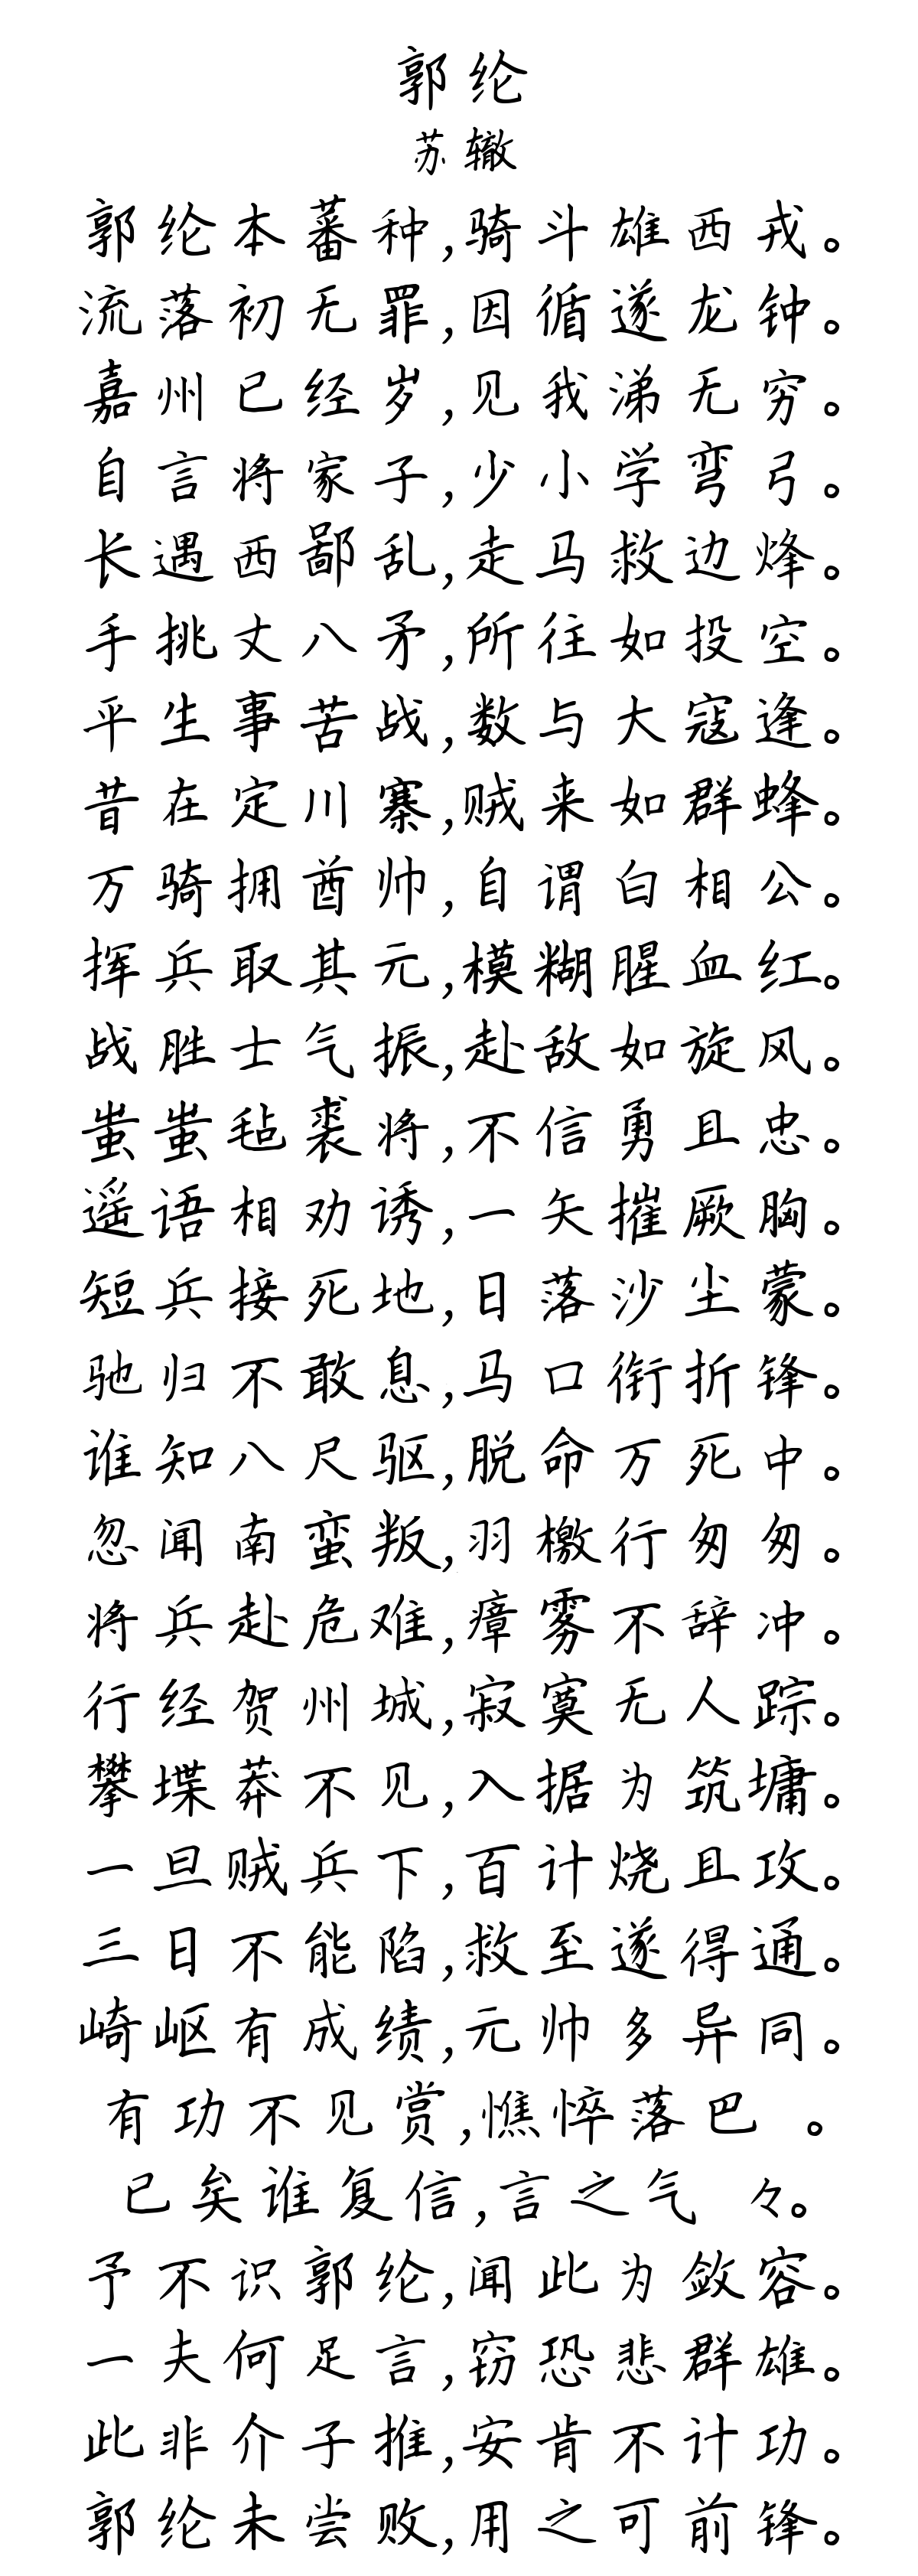 郭纶
苏辙
郭纶本蕃种,骑斗雄西戎。
流落初无罪,因循遂龙钟。
嘉州已经岁,见我涕无穷。
自言将家子,少小学弯弓。
长遇西鄙乱,走马救边烽。
手挑丈八矛,所往如投空。
平生事苦战,数与大寇逢。
昔在定川寨,贼来如群蜂。
万骑拥酋帅,自谓白相公。
挥兵取其元,模糊腥血红。
战胜士气振,赴敌如旋风。
蚩蚩毡裘将,不信勇且忠。
遥语相劝诱,一矢摧厥胸。
短兵接死地,日落沙尘蒙。
驰归不敢息,马口衔折锋。
谁知八尺驱,脱命万死中。
忽闻南蛮叛,羽檄行匆匆。
将兵赴危难,瘴雾不辞冲。
行经贺州城,寂寞无人踪。
攀堞莽不见,入据为筑墉。
一旦贼兵下,百计烧且攻。
三日不能陷,救至遂得通。
崎岖有成绩,元帅多异同。
有功不见赏,憔悴落巴 。
已矣谁复信,言之气 々。
予不识郭纶,闻此为敛容。
一夫何足言,窃恐悲群雄。
此非介子推,安肯不计功。
郭纶未尝败,用之可前锋。